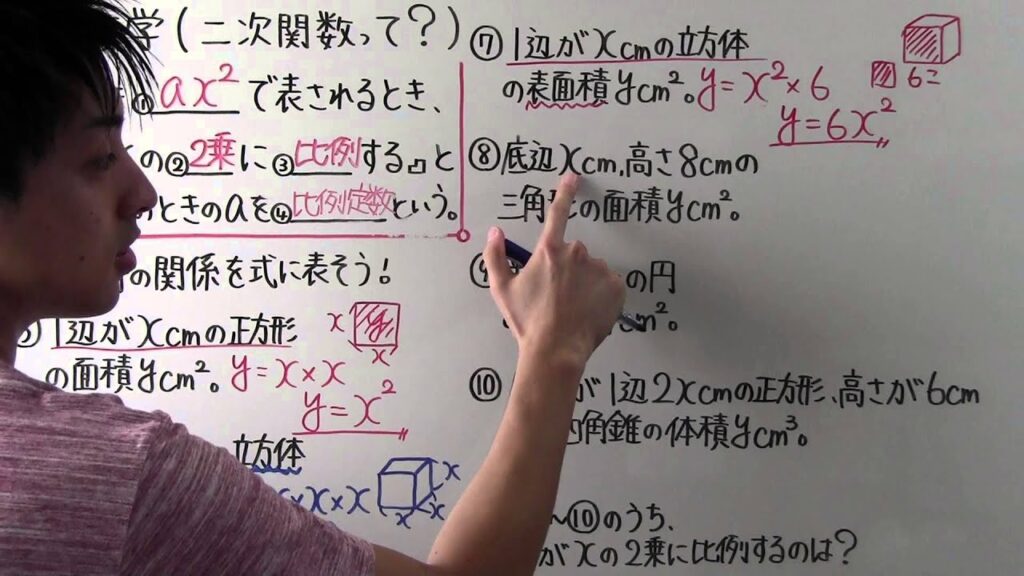 学(二次関数って?)
ax² で表されるとき、
の②2乗に③比例する』と
のときのaを④比例定数という。
の関係を式に表そう!
1辺がxcmの正方形
の面積ycm²。
x
y
x
y=x×x
y=x²
立方体
x×x
x
x
x
⑦1辺がxcmの立方体
の表面積ycm²。
y=x²×6
y=6x²
6こ
⑧底辺xcm,高さ8cmの
三角形の面積ycm²。
の円
cm²。
⑩が1辺2xcmの正方形、高さが6cm
角錐の体積ycm³。
~⑩のうち、
がxの2乗に比例するのは?